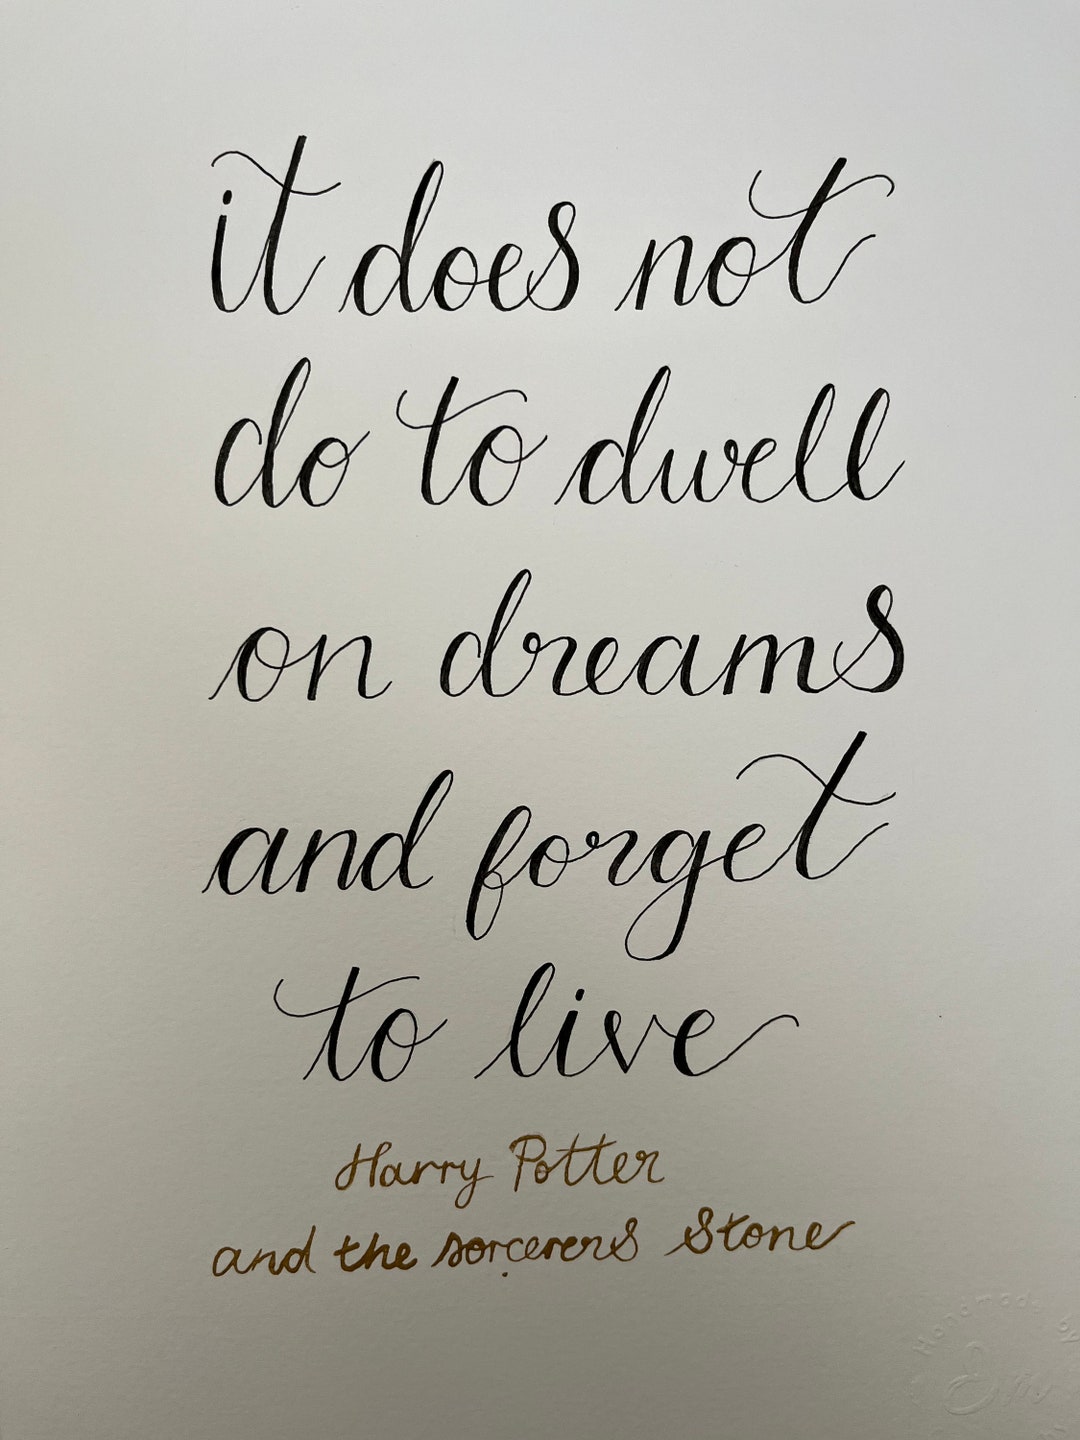 it does not
do to dwell
on dreams
and forget
to live
Harry Potter
and the sorcerers Stone
Handmade by